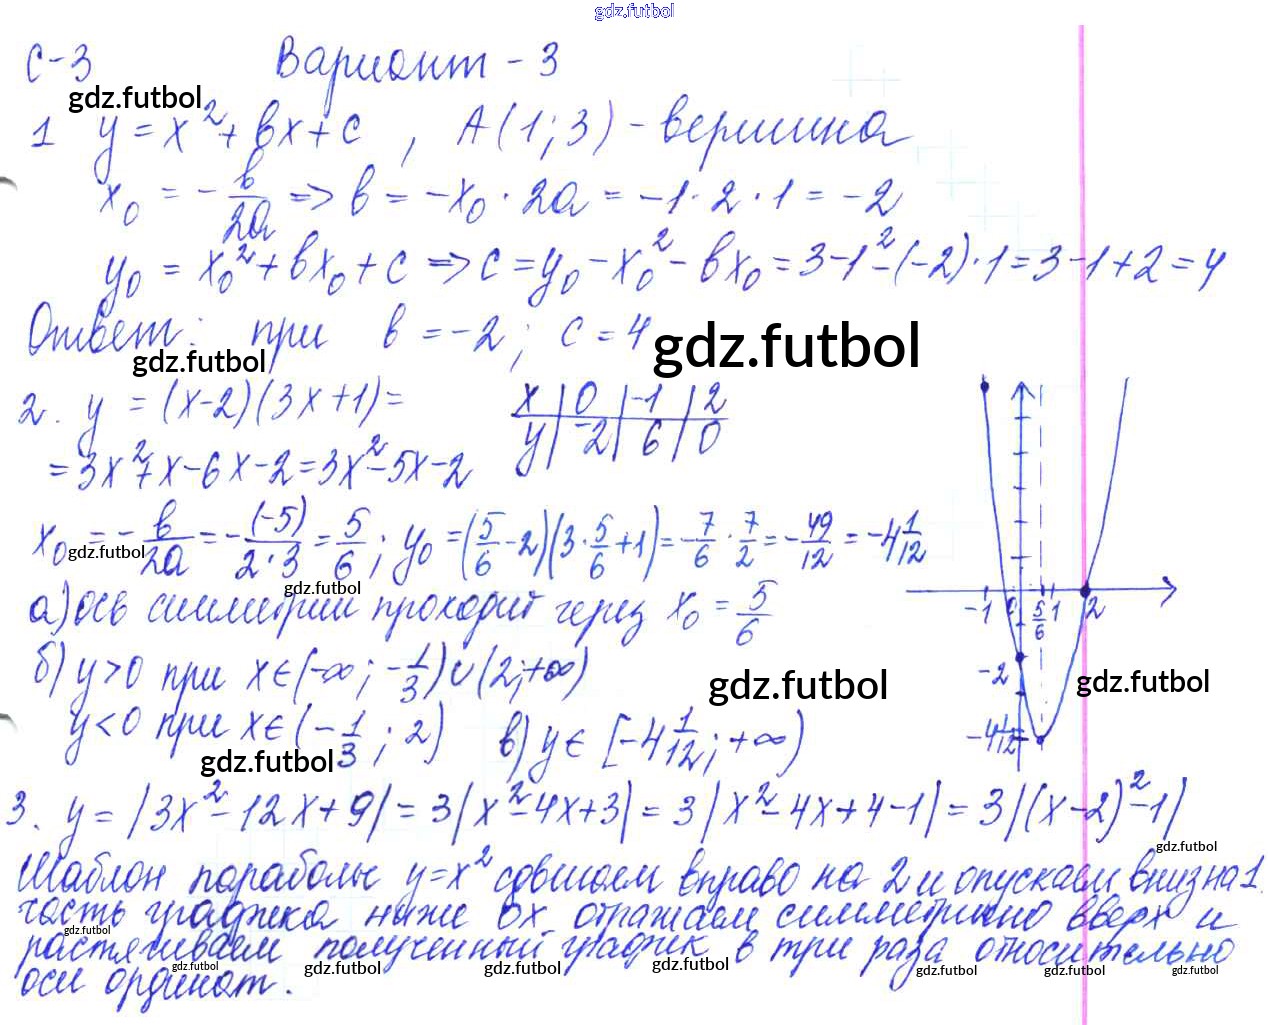 gdz.futbol
С-3 Вариант - 3
gdz.futbol
1 y = x² + bx + c , A(1; 3) - вершина
x₀ = - b/2a => b = -x₀ · 2a = -1 · 2 · 1 = -2
y₀ = x₀² + bx₀ + c => c = y₀ - x₀² - bx₀ = 3 - 1² - (-2) · 1 = 3 - 1 + 2 = 4
Ответ: при b = -2; c = 4
gdz.futbol gdz.futbol
2. y = (x-2)(3x+1) =
x | 0 | -1 | 2
y | -2 | 6 | 0
= 3x² + x - 6x - 2 = 3x² - 5x - 2
x₀ = - b/2a = - (-5)/2·3 = 5/6 ; y₀ = (5/6 - 2)(3 · 5/6 + 1) = - 7/6 · 7/2 = - 49/12 = -4 1/12
gdz.futbol
gdz.futbol
а) ось симметрии проходит через x₀ = 5/6
б) y > 0 при x ∈ (-∞; -1/3) ∪ (2; +∞)
gdz.futbol gdz.futbol
y < 0 при x ∈ (-1/3 ; 2) в) y ∈ [-4 1/12; +∞)
gdz.futbol
-1 0 5/6 1 2
-2
-4 1/12
3. y = |3x² - 12x + 9| = 3|x² - 4x + 3| = 3|x² - 4x + 4 - 1| = 3|(x-2)² - 1|
gdz.futbol
Шаблон параболы y = x² сдвигаем вправо на 2 и опускаем вниз на 1.
часть графика ниже Ox отражаем симметрично вверх и
gdz.futbol
растягиваем полученный график в три раза относительно
gdz.futbol gdz.futbol gdz.futbol gdz.futbol gdz.futbol gdz.futbol gdz.futbol
оси ординат.